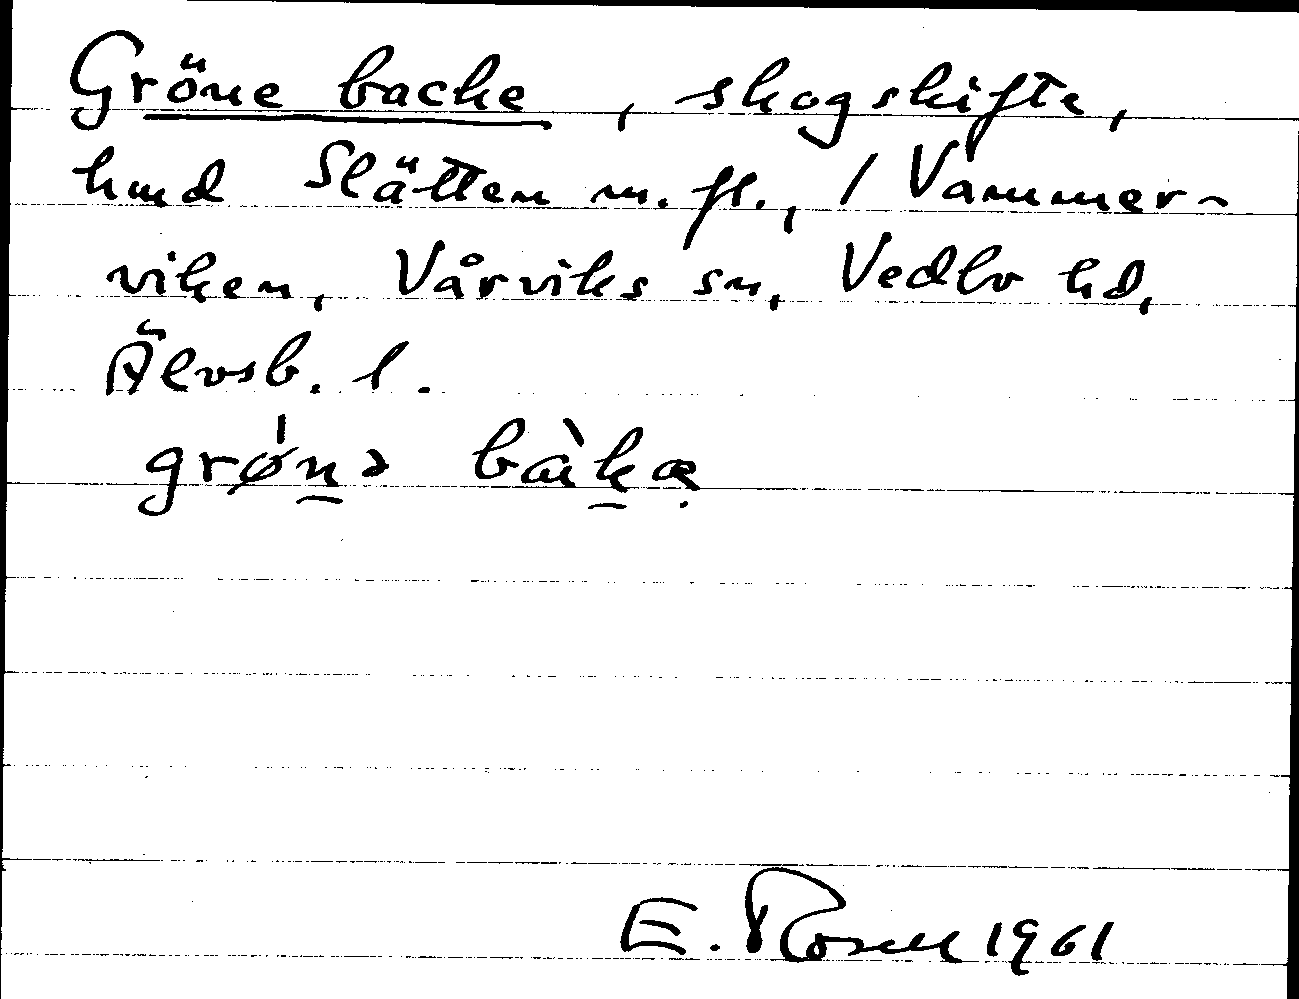 Gröne backe, skogskifte,
hmd Slätten m. fl., / Vammer-
viken, Vårviks sn, Vedbo hd,
Älvsb. l.
grø̍n̠ə bàk̠æ̣
E. Rosell 1961